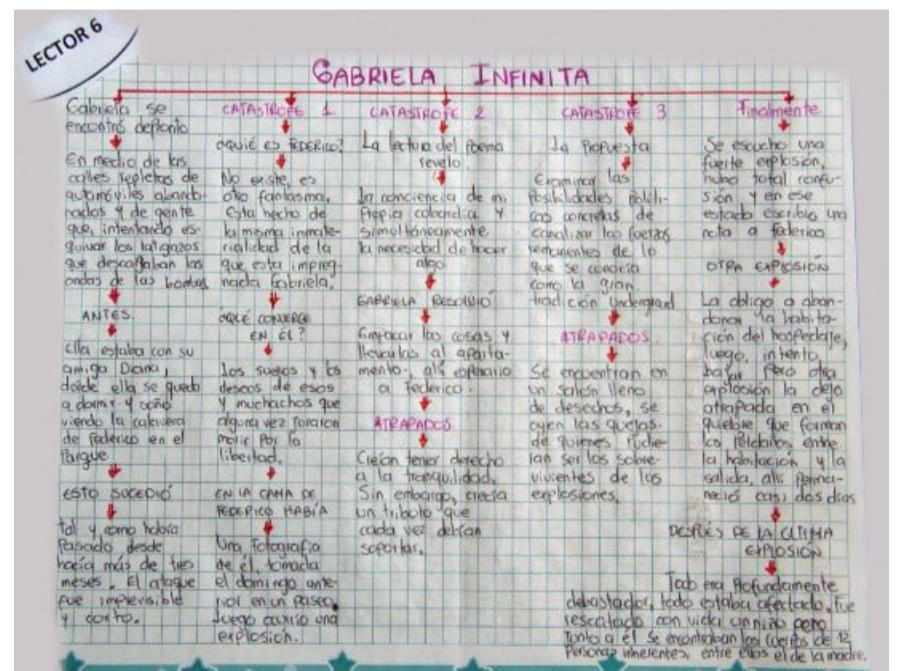 LECTOR 6
GABRIELA INFINITA
Gabriela se
encontró de pronto
En medio de las
calles repletas de
automóviles abando-
nados y de gente
que, intentando es-
quivar los latigazos
que descargaban las
ondas de las bombas
ANTES.
Ella estaba con su
amiga Diana,
donde ella se quedo
a dormir y soño
viendo la calavera
de Federico en el
Parque.
ESTO SUCEDIÓ
tal y como había
Pasado desde
hacía más de tres
meses. El ataque
fue imprevisible
y corto.
CATASTROFE 1
¿quié es FEDERICO?
No existe, es
otro fantasma.
Esta hecho de
la misma inmate-
rialidad de la
que esta impreg-
nada Gabriela.
¿QUÉ CONVERGE
EN ÉL?
Los sueños y los
deseos de esos
y muchachos que
alguna vez juraron
morir Por la
libertad.
EN LA CAMA DE
FEDERICO HABÍA
Una Fotografía
de él, tomada
el domingo ante-
rior en un paseo.
Luego ocurrio una
explosión.
CATASTROFE 2
La lectura del Poema
revelo
la conciencia de mi
Propia cobardía y
simultáneamente
la necesidad de hacer
algo
GABRIELA RESOLVIÓ
Empacar las cosas y
llevarlas al aparta-
mento, allí esperario
a Federico.
ATRAPADOS
Creían tener derecho
a la tranquilidad.
Sin embargo, crecía
un tributo que
cada vez debían
soportar.
CATASTROFE 3
La Propuesta
Examinar las
Posibilidades Políti-
cas concretas de
canalizar las fuerzas
remanentes de lo
que se conocía
como la gran
tradición Undergrad
ATRAPADOS
Se encuentran en
un salón lleno
de desechos, se
oyen las quejas
de quienes Pudie-
ran ser los sobre-
vivientes de las
explosiones.
Finalmente
Se escucho una
fuerte explosión,
hubo total confu-
sión y en ese
estado escribio una
nota a federico
OTRA EXPLOSIÓN
La obligo a aban-
donar la habita-
ción del hospedaje,
luego, intento
bajar Pero otra
explosión la dejo
atrapada en el
quiebre que forman
los Peldaños entre
la habitación y la
salida, allí Perma-
neció casi dos días
DESPUÉS DE LA ÚLTIMA
EXPLOSIÓN
Todo era Profundamente
debastador, todo estaba afectado, fue
rescatado con vida un niño pero
Junto a él se encontraban los cuerpos de 12
Personas inherentes, entre ellos el de la madre.